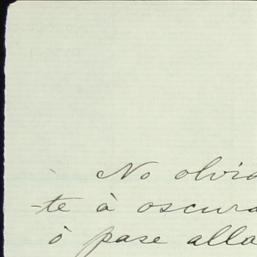 No olvid
-te à oscura
ò pase alla